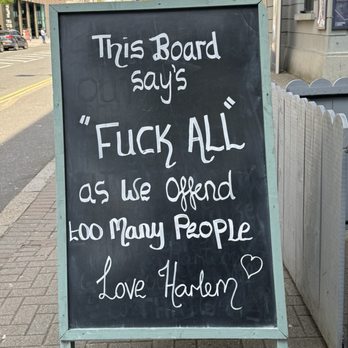 This Board
say's
"FUCK ALL"
as we Offend
too Many People
Love Harlem